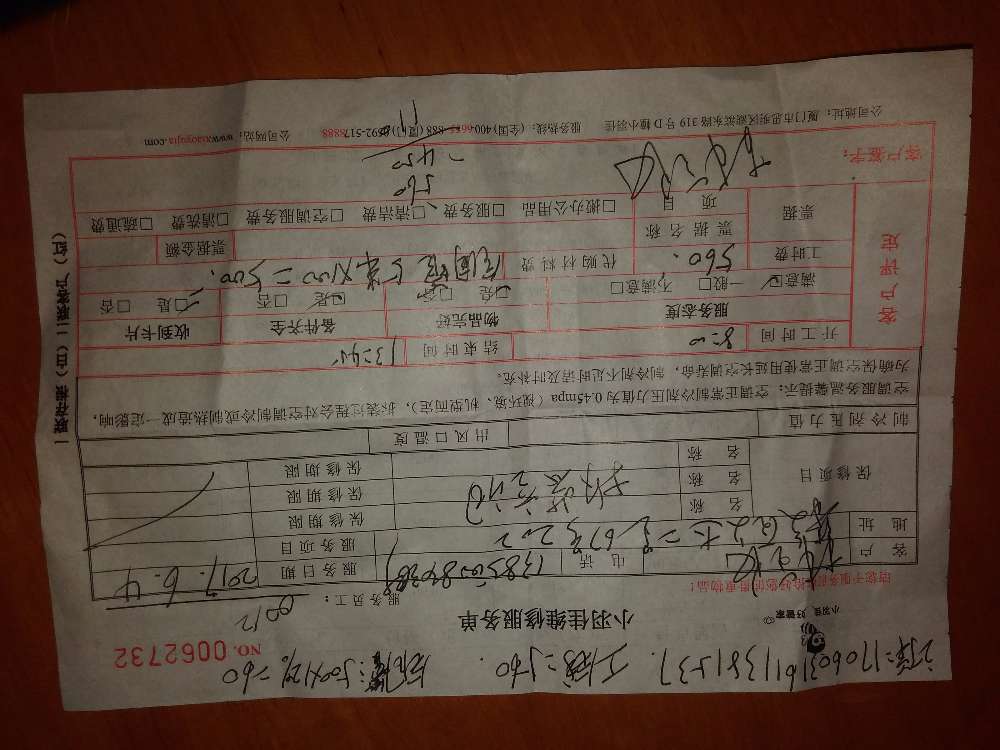 订单=170603161138153７.
工时=560.
500×12%=60
小羽佳 好管家
小羽佳维修服务单
NO. 0062732
请您于服务前检验您的贵重物品!
服务员工:
0012
客户
电话
服务日期
2017.6.4
地址
67号202
服务项目
保修项目
名称
保修期限
名称
保修期限
名称
保修期限
制冷剂压力值
出风口温度
空调服务温馨提示:空调正常制冷剂压力值为0.45mpa(视环境、机型而定),拆装过程会对空调制冷或制热造成一定影响,
为确保空调正常使用延长空调寿命,制冷剂不足时请及时补充。
客户评定
开工时间
8:00
结束时间
13:45
服务态度
物品完好
备件齐全
收到卡片
满意☑ 一般□ 不满意□
是□ 否□
是□ 否□
是□ 否□
工时费
560.
代购材料费
×100=500.
票据
票据名称
票据金额
项目
□搬办公用品 □服务费 □清洁费 □空调服务费 □清洗费 □疏通费
560
-450
客户签字:
公司地址:厦门市思明区湖滨东路319号D幢小羽佳
服务热线:(全国)400-6677-888 (厦门)0592-5178888
公司网站:www.xiaoyujia.com
一联存根(白)二联客户(红)